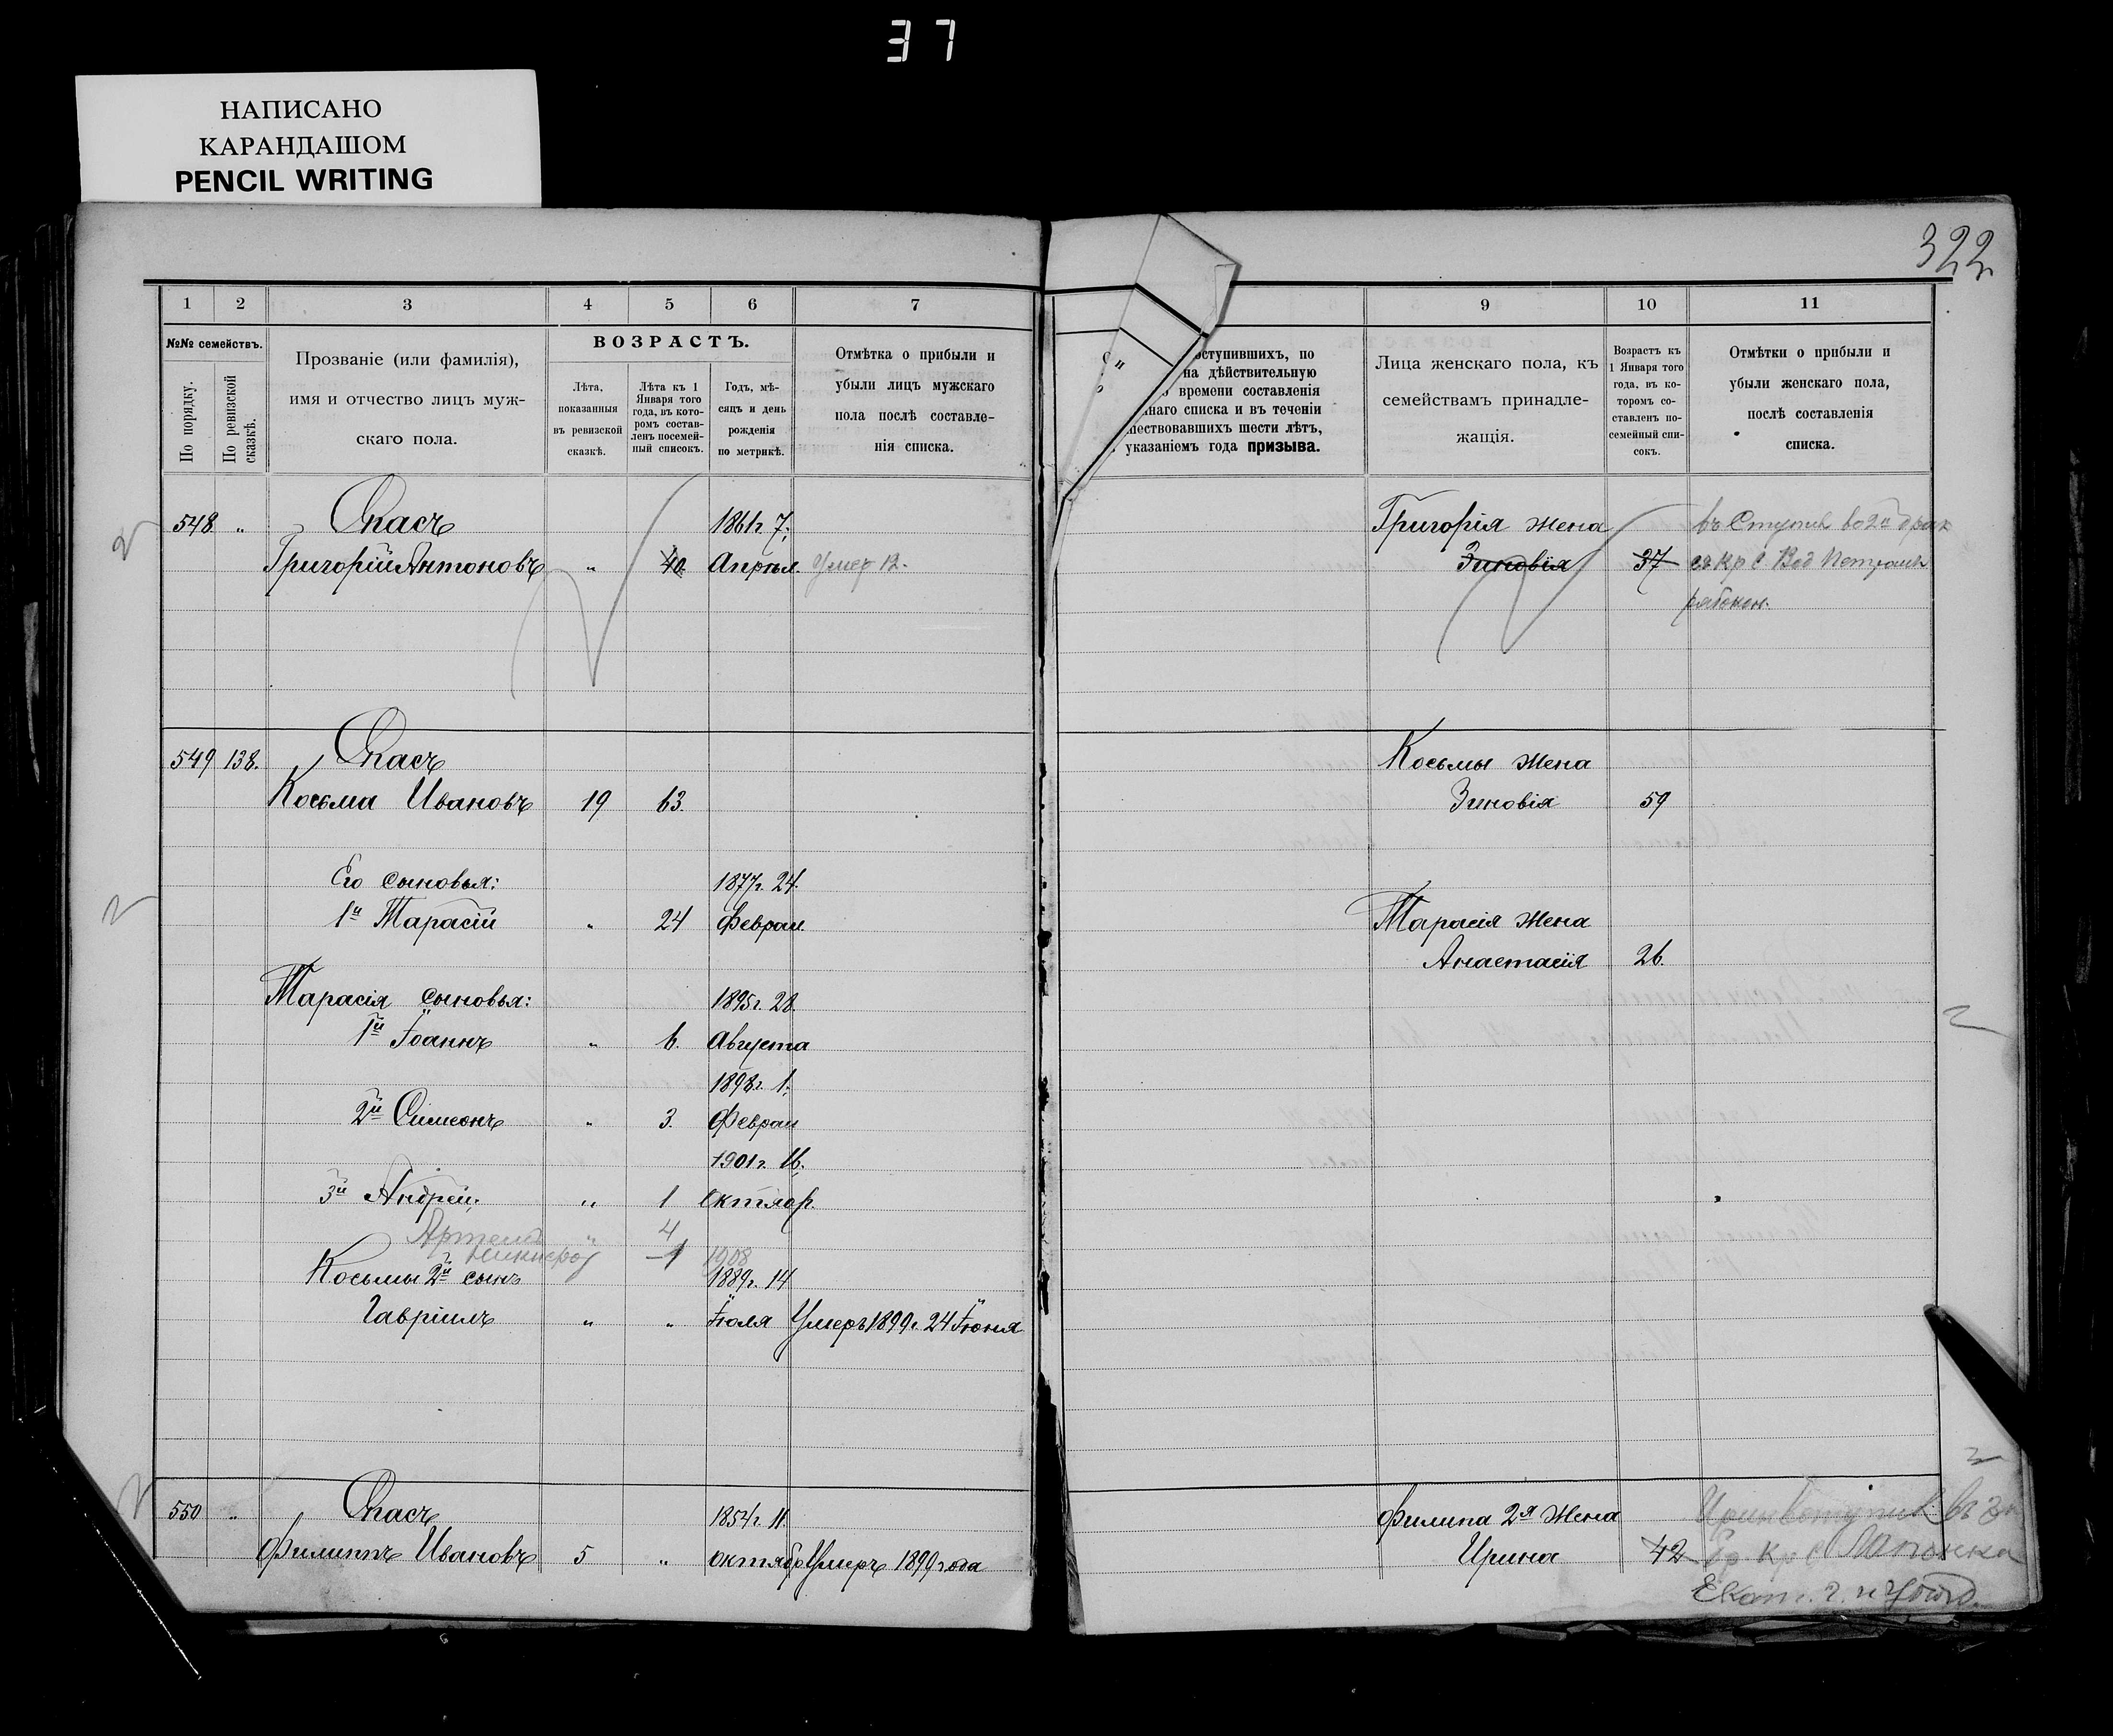 37
НАПИСАНО
КАРАНДАШОМ
PENCIL WRITING
322
1 2 3 4 5 6 7
№№ семействъ.
По порядку.
По ревизской сказкѣ.
Прозваніе (или фамилія),
имя и отчество лицъ муж-
скаго пола.
ВОЗРАСТЪ.
Лѣта,
показанныя
въ ревизской
сказкѣ.
Лѣта къ 1
Января того
года, въ кото-
ромъ состав-
ленъ посемей-
ный списокъ.
Годъ, мѣ-
сяцъ и день
рожденія
по метрикѣ.
Отмѣтка о прибыли и
убыли лицъ мужскаго
пола послѣ составле-
нія списка.
548 „ Спасъ 1861г. 7.
Григорій Антоновъ „ 40 Апрѣля. Умер 12.
549 138. Спасъ
Косьма Ивановъ 19 63.
Его сыновья: 1877г. 24.
1й Тарасій „ 24 Феврал.
Тарасія сыновья: 1895г. 28.
1й Іоаннъ „ 6. Августа
1898г. 1.
2й Симеонъ „ 3. Феврал
1901г. 16.
3й Андрей „ 1 Октябр.
Артемъ „ 4
Никифор 1 1908
Косьмы 2й сынъ 1889г. 14
Гавріилъ „ „ Іюля Умеръ 1899г. 24 Іюня
550 „ Спасъ 1854г. 11.
Филиппъ Ивановъ 5 „ октябр Умеръ 1899 года
9 10 11
оступившихъ, по
на дѣйствительную
времени составленія
наго списка и въ теченіи
шествовавшихъ шести лѣтъ,
указаніемъ года призыва.
Лица женскаго пола, къ
семействамъ принадле-
жащія.
Возрастъ къ
1 Января того
года, въ ко-
торомъ со-
ставленъ по-
семейный спи-
сокъ.
Отмѣтки о прибыли и
убыли женскаго пола,
послѣ составленія
списка.
Григорія жена въ Ступил во 2й брак
Зиновія 37 съ кр с
Косьмы жена
Зиновія 59
Тарасія жена
Анастасія 26.
Филипа 2я жена
Ирина 42 кр с
Екат. г.